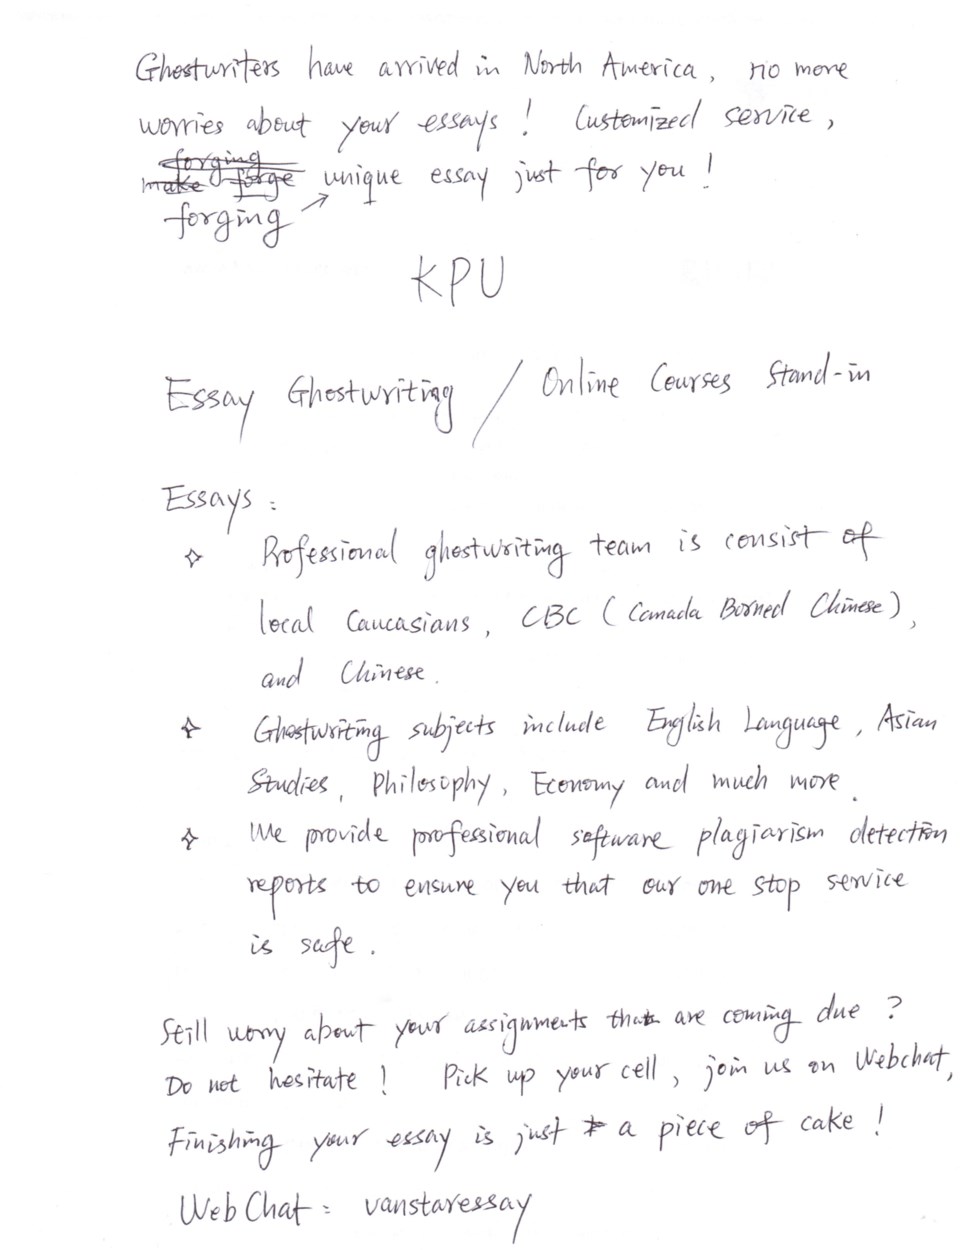 Ghostwriters have arrived in North America, no more
worries about your essays! Customized service,
forging
make forge unique essay just for you!
forging
KPU
Essay Ghostwriting / Online Courses Stand-in
Essays:
Professional ghostwriting team is consist of
local Caucasians, CBC (Canada Borned Chinese),
and Chinese.
Ghostwriting subjects include English Language, Asian
Studies, Philosophy, Economy and much more.
We provide professional software plagiarism detection
reports to ensure you that our one stop service
is safe.
Still worry about your assignments that are coming due?
Do not hesitate! Pick up your cell, join us on Webchat,
Finishing your essay is just a piece of cake!
WebChat: vanstaressay